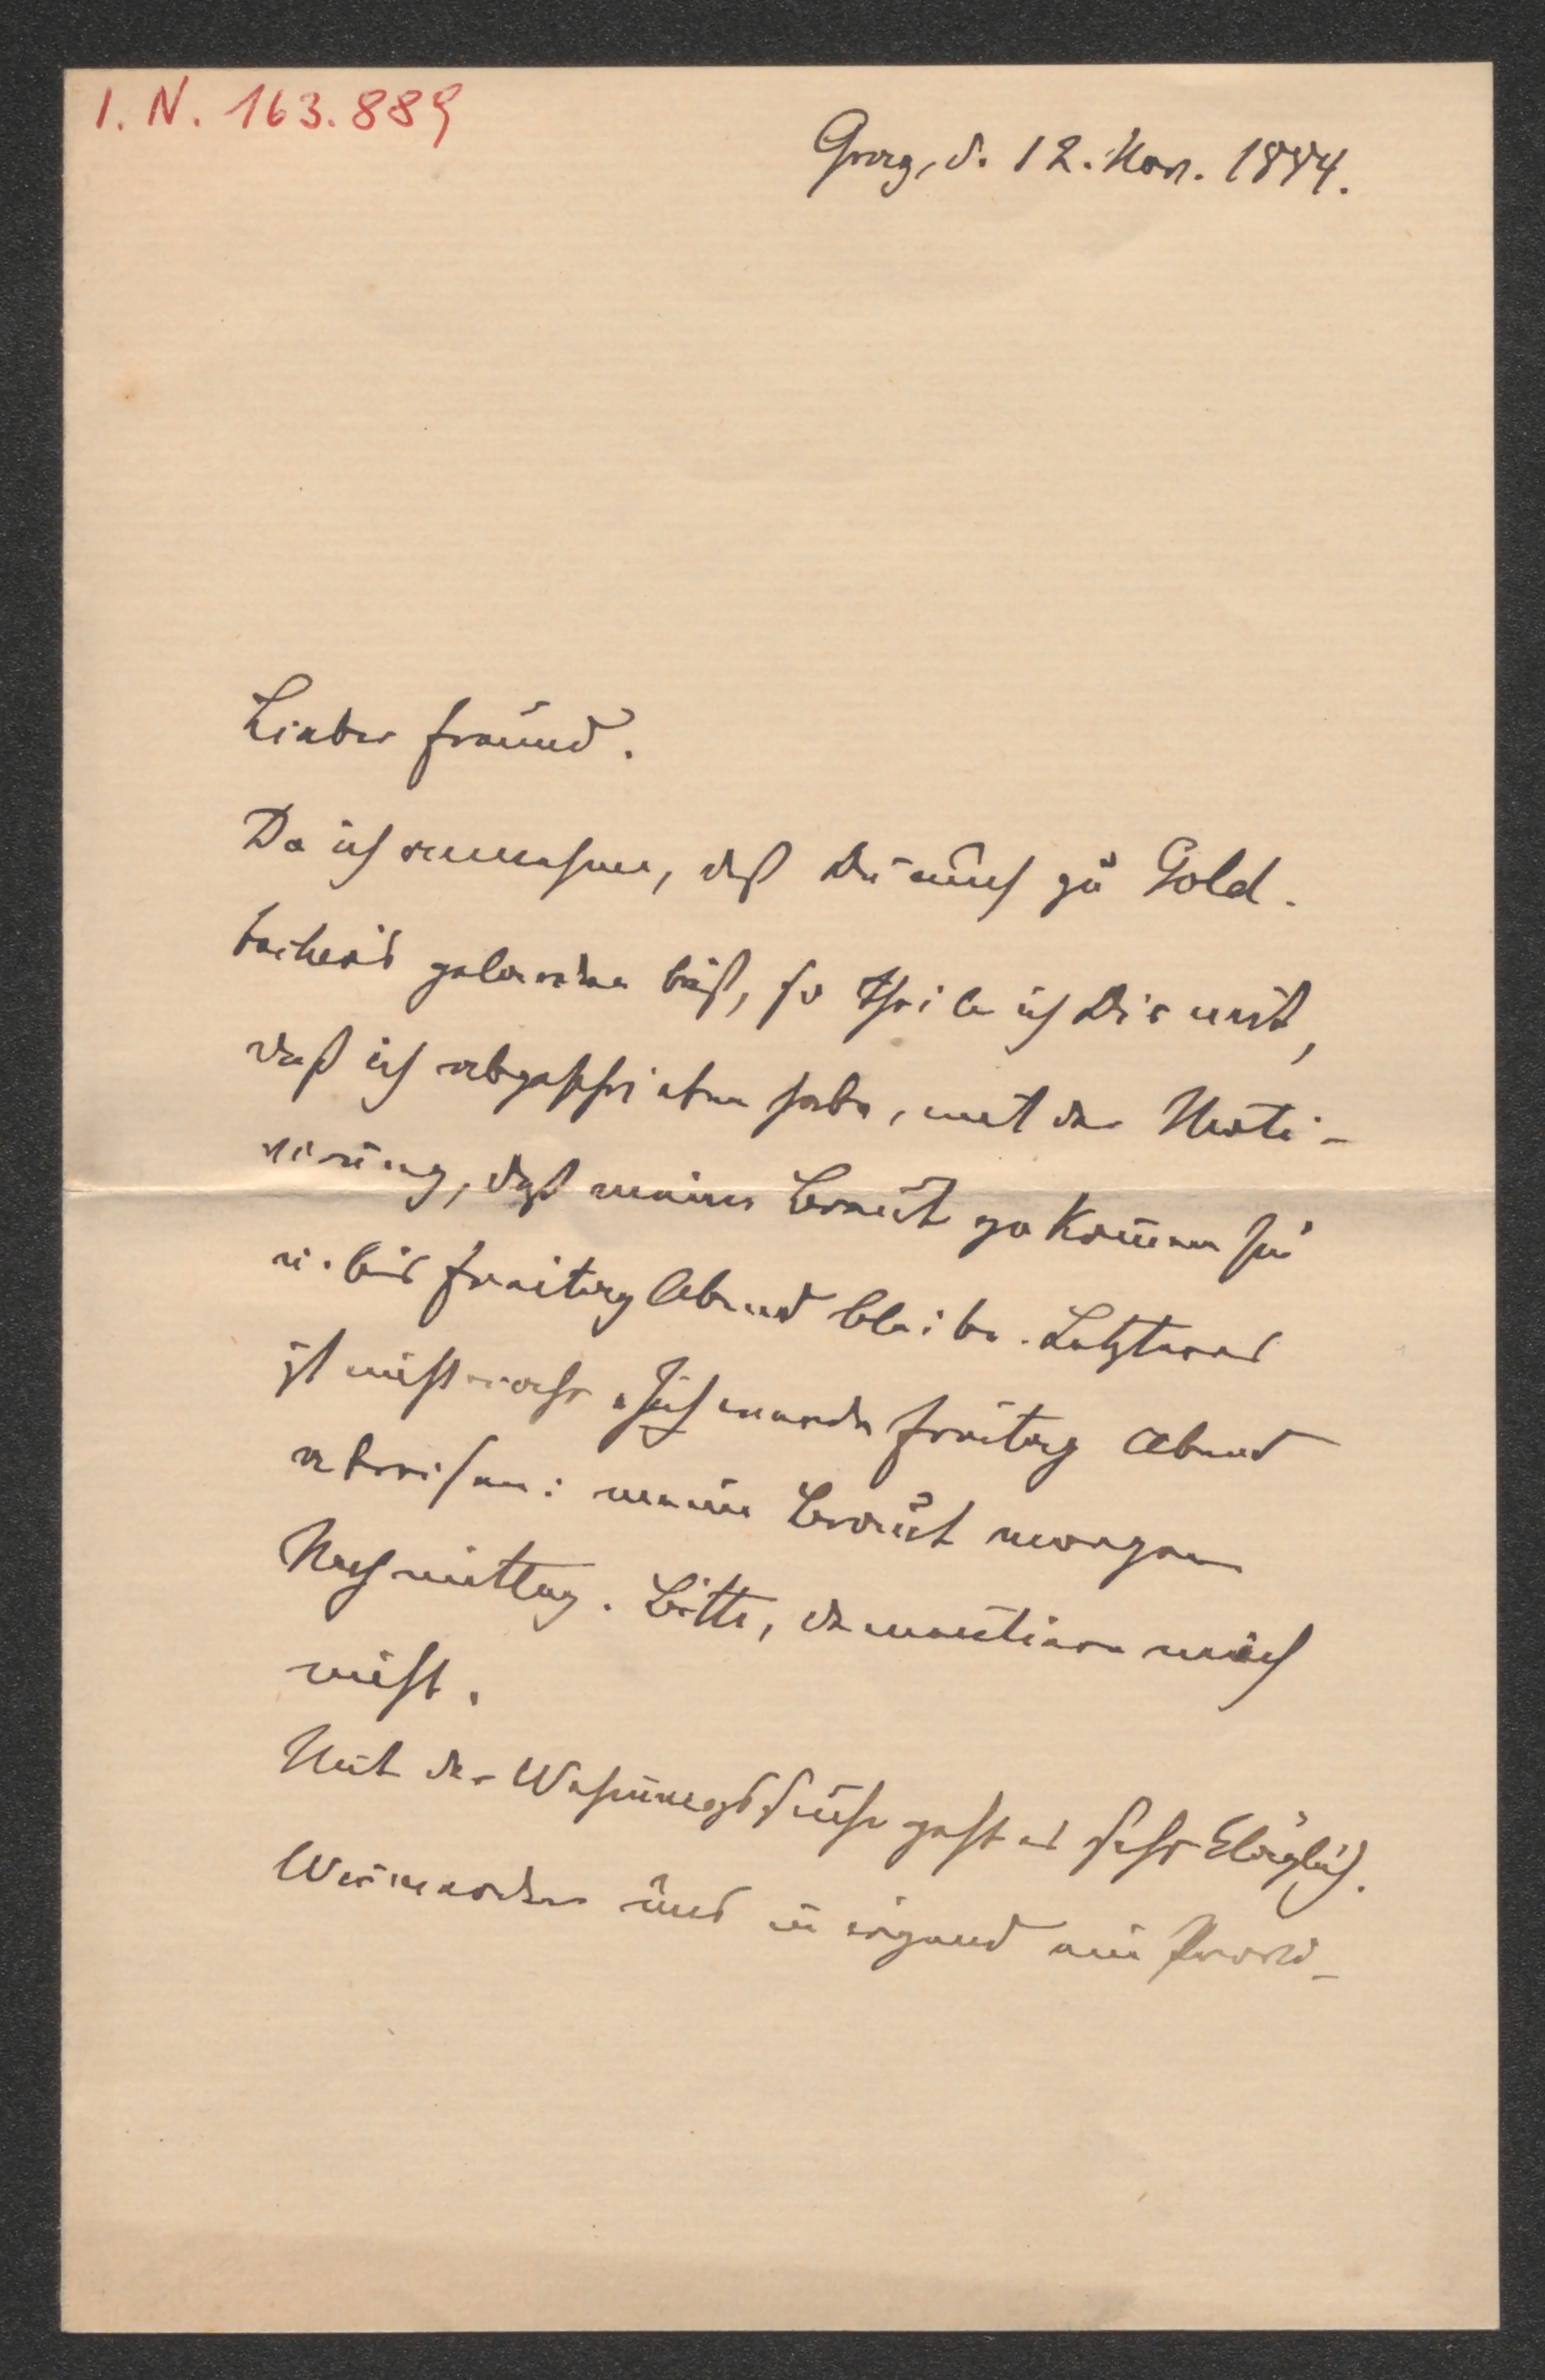 I. N. 163.889
Prag, d. 12. Nov. 1884.
Lieber Freund.
Da ich annehme, daß Du auch zu Gold-
bacher's geladen bist, so theile ich Dir mit,
daß ich abgeschrieben habe, mit der Moti-
virung, daß meine Braut gekommen sei
u. bis Freitag Abend bleibe. Letzteres
ist nicht wahr. Ich werde Freitag Abend
abreisen: meine Braut morgen
Nachmittag. Bitte, dementiere mich
nicht.
Mit der Wohnungssuche geht es sehr kläglich.
Wir werden uns in irgend ein Provi-